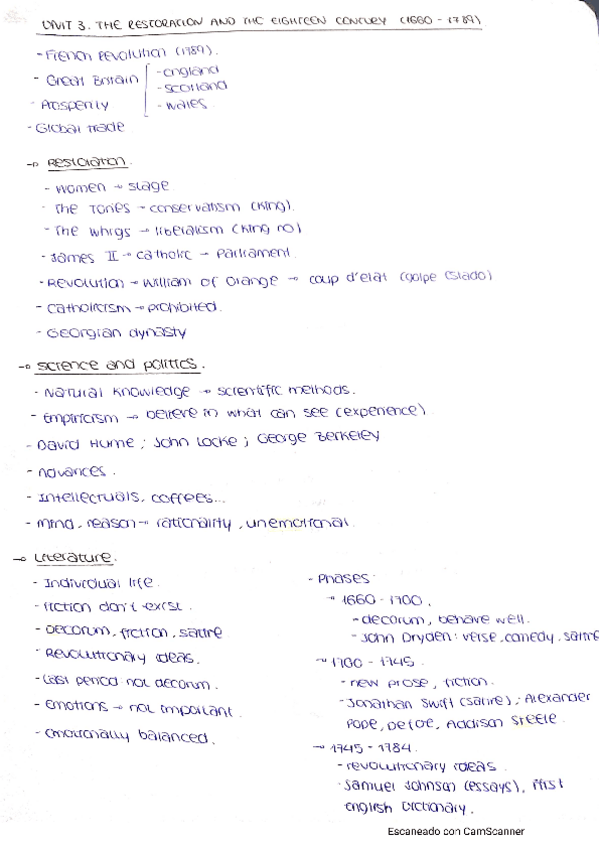 UNIT 3. THE RESTORATION AND THE EIGHTEEN CENTURY (1660 - 1789)
- French Revolution (1789).
- Great Britain
- England
- Scotland
- Wales
- Prosperity
- Global trade
→ Restoration.
- Women → stage
- The Tories → conservatism (King).
- The Whigs → liberalism (King no)
- James II → catholic → Parliament.
- Revolution → William of Orange → coup d'etat (golpe Estado)
- Catholicism → prohibited.
- Georgian dynasty
→ Science and politics.
- Natural knowledge → scientific methods.
- Empiricism → believe in what can see (experience)
- David Hume ; John Locke ; George Berkeley
- Advances.
- Intellectuals, coffees...
- Mind, reason → rationality, unemotional
→ Literature.
- Individual life.
- Fiction don't exist.
- Decorum, fiction, satire
- Revolutionary ideas.
- Last period not decorum.
- Emotions → not important.
- Emotionally balanced.
- Phases:
→ 1660 - 1700.
- decorum, behave well.
- John Dryden: verse, comedy, satire
→ 1700 - 1745.
- new prose, fiction.
- Jonathan Swift (satire), Alexander
Pope, Defoe, Addison Steele.
→ 1745 - 1784.
- revolutionary ideas.
- Samuel Johnson (essays), first
English Dictionary.
Escaneado con CamScanner